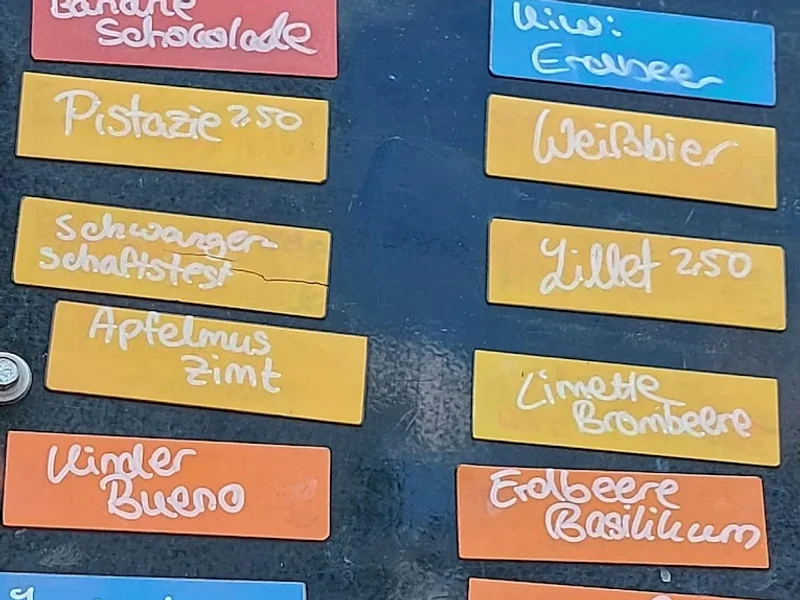 Banane
Schocolade
Pistazie 2,50
Schwanger-
schaftstest
Apfelmus
Zimt
Kinder
Bueno
Kiwi
Erdbeer
Weißbier
Lillet 2,50
Limette
Brombeere
Erdbeere
Basilikum